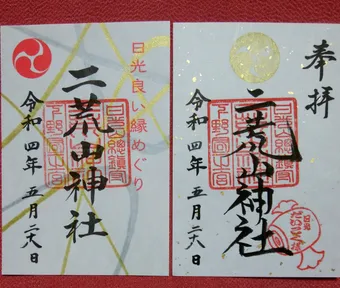 日光良い縁めぐり
二荒山神社
令和四年五月二六日
日光総鎮守
下野国一之宮
奉拝
二荒山神社
令和四年五月二六日
日光総鎮守
下野国一之宮
日光